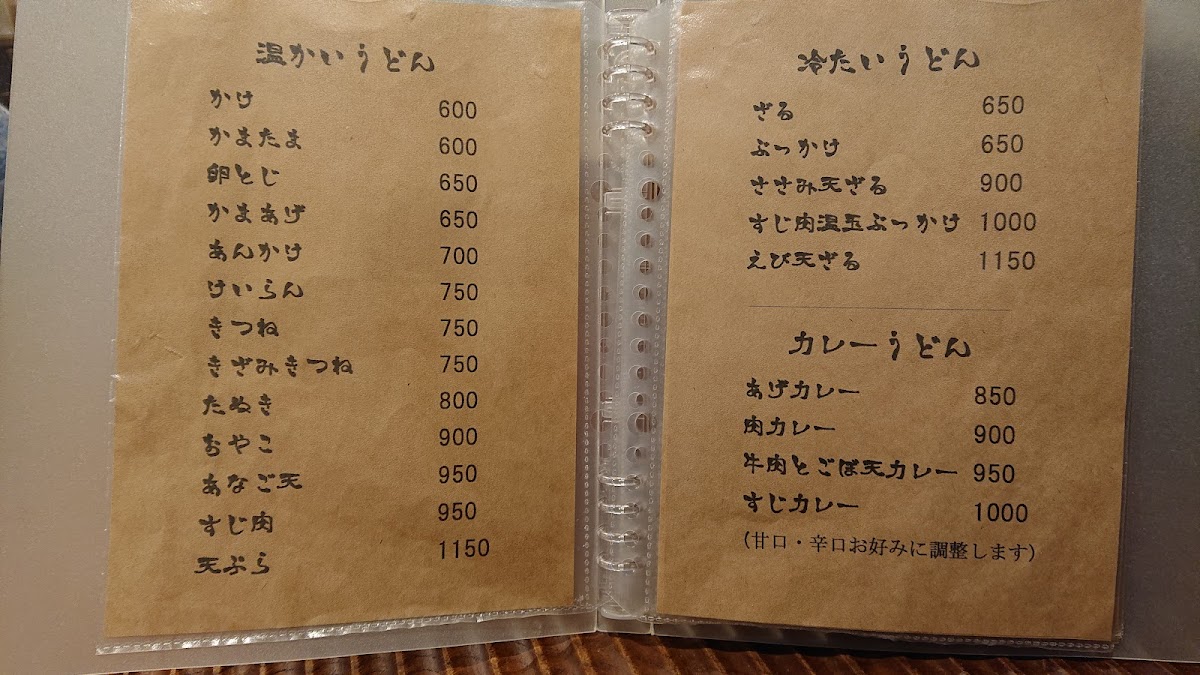 温かいうどん
かけ 600
かまたま 600
卵とじ 650
かまあげ 650
あんかけ 700
けいらん 750
きつね 750
きざみきつね 750
たぬき 800
おやこ 900
あなご天 950
すじ肉 950
天ぷら 1150
冷たいうどん
ざる 650
ぶっかけ 650
ささみ天ざる 900
すじ肉温玉ぶっかけ 1000
えび天ざる 1150
カレーうどん
あげカレー 850
肉カレー 900
牛肉とごぼ天カレー 950
すじカレー 1000
(甘口・辛口お好みに調整します)